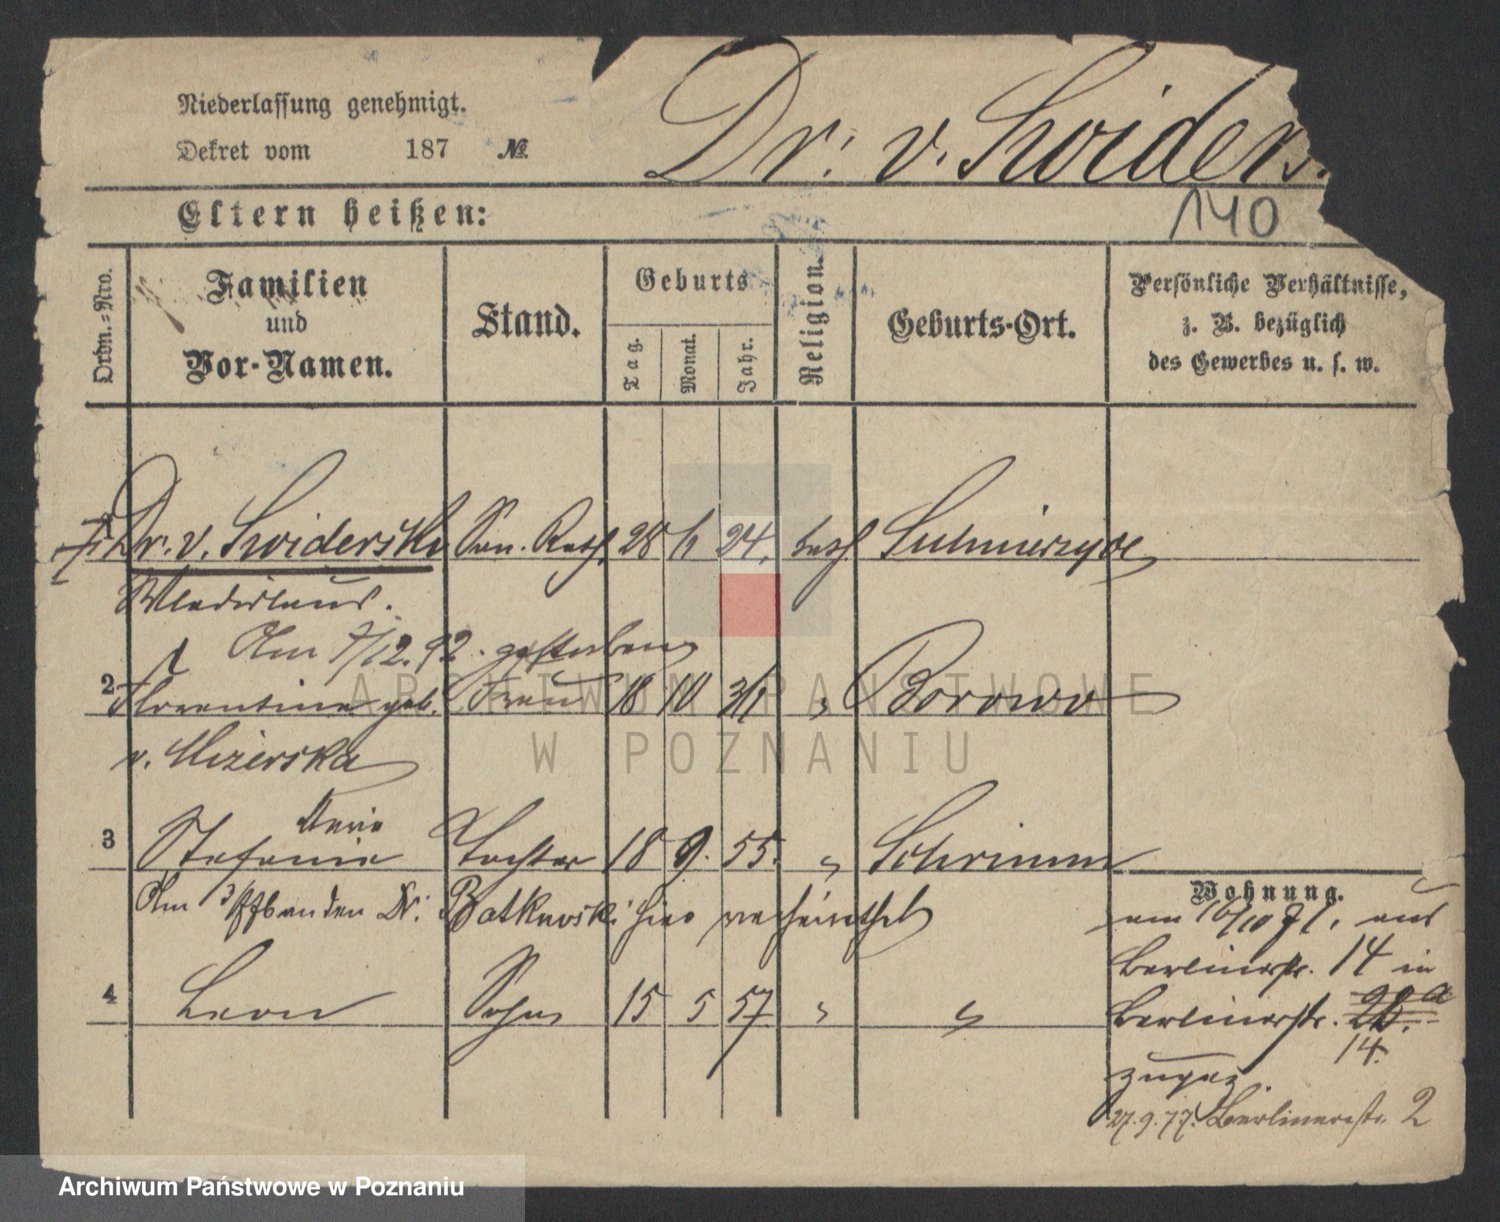 Niederlassung genehmigt.
Dekret vom 187 №
Dr. v. Swiders.
140
Eltern heißen:
Ordn.-Nro.
Familien und Vor-Namen.
Stand.
Geburts
Tag.
Monat.
Jahr.
Religion.
Geburts-Ort.
Persönliche Verhältnisse,
z. B. bezüglich
des Gewerbes u. s. w.
Dr. v. Swiderski San. Rath 28 6 24. kath Sulmierzyce
Wladislaus.
Am 7/12. 92. gestorben
2 Florentine geb. Frau 18 10 " Borowo
v. Mizerska
Marie
3 Stefanie Tochter 18 9. 55. " Schrimm
Am den Dr. Batkowski hier verheirathet
4 Leon Sohn 15 5 57 " "
Wohnung.
am 10/10 71. aus
Berlinerstr. 14 in
Berlinerstr.
14.
zugez.
27.9.77. Berlinerstr. 2
ARCHIWUM PAŃSTWOWE
W POZNANIU
Archiwum Państwowe w Poznaniu